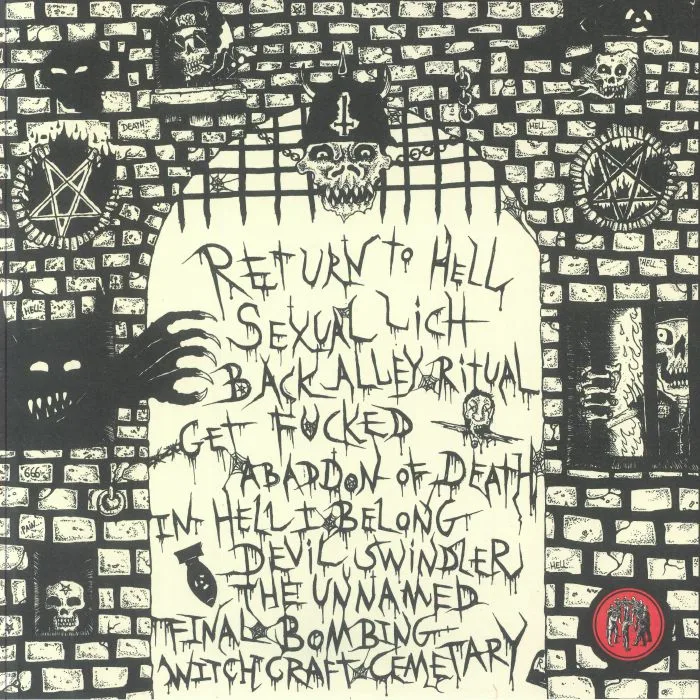 DEATH
HELL
HELL
HELL
RETURN TO HELL
SEXUAL LICH
BACK ALLEY RITUAL
GET FUCKED
ABADDON OF DEATH
666
IN HELL I BELONG
DEVIL SWINDLER
HELL
THE UNNAMED
FINAL BOMBING
WITCHCRAFT CEMETARY